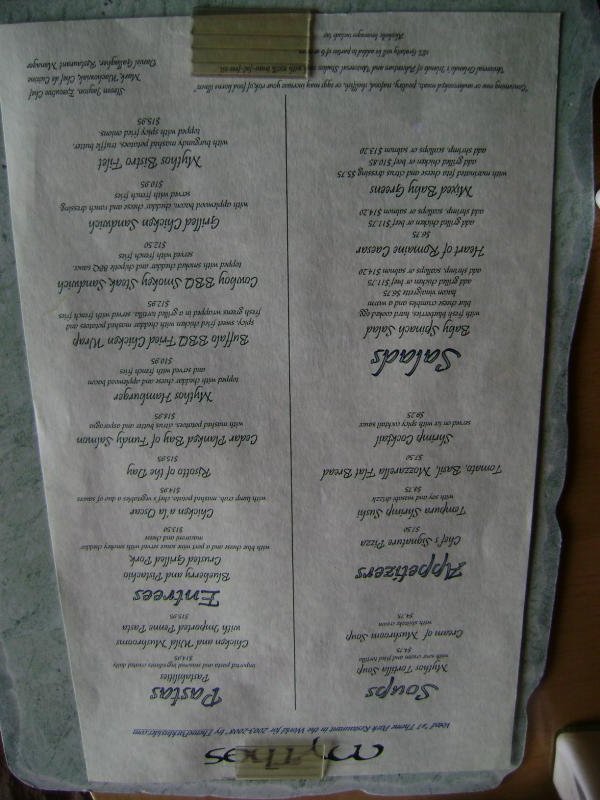 Mythos
Voted "#1 Theme Park Restaurant in the World for 2003-2008" by ThemeParkInsider.com
Soups
Mythos Tortilla Soup
with sour cream and fried tortilla
$4.75
Cream of Mushroom Soup
with shiitake cream
$4.75
Appetizers
Chef's Signature Pizza
$7.50
Tempura Shrimp Sushi
with soy and wasabi drizzle
$8.75
Tomato, Basil, Mozzarella Flat Bread
$7.50
Shrimp Cocktail
served on ice with spicy cocktail sauce
$9.25
Salads
Baby Spinach Salad
with fresh blueberries, hard cooked egg
blue cheese crumbles and a warm
bacon vinaigrette $6.75
add grilled chicken or beef $11.75
add shrimp, scallops or salmon $14.20
Heart of Romaine Caesar
$6.75
add grilled chicken or beef $11.75
add shrimp, scallops or salmon $14.20
Mixed Baby Greens
with marinated feta cheese and citrus dressing $5.75
add grilled chicken or beef $10.85
add shrimp, scallops or salmon $13.20
Pastas
Pastabilities
imported pasta and seasonal ingredients created daily
$14.95
Chicken and Wild Mushrooms
with Imported Penne Pasta
$15.95
Entrees
Blueberry and Pistachio
Crusted Grilled Pork
with blue cheese and a port wine sauce served with smokey cheddar
macaroni and cheese
$13.50
Chicken a la Oscar
with lump crab, mashed potato, chef's vegetables a duo of sauces
$14.95
Risotto of the Day
$15.95
Cedar Planked Bay of Fundy Salmon
with mashed potatoes, citrus butter and asparagus
$18.95
Mythos Hamburger
topped with cheddar cheese and applewood bacon
and with french fries
$10.95
Buffalo BBQ Fried Chicken Wrap
spicy, sweet fried chicken with cheddar mashed potatoes and
fresh greens wrapped in a grilled tortilla, served with french fries
$12.95
Cowboy BBQ Smokey Steak Sandwich
topped with smoked cheddar and chipotle BBQ sauce,
served with french fries
$12.50
Grilled Chicken Sandwich
with applewood bacon, cheddar cheese and ranch dressing
served with french fries
$10.95
Mythos Bistro Filet
with burgundy mashed potatoes, truffle butter,
topped with spicy fried onions
$15.95
Steven Jayson, Executive Chef
Mark Wachowiak, Chef de Cuisine
Daniel Gallagher, Restaurant Manager
"Consuming raw or undercooked meats, poultry, seafood, shellfish, or eggs may increase your risk of food borne illness"
Universal Orlando's Islands of Adventure and Universal Studios with 100% trans-fat-free oil
18% Gratuity will be added to parties of 8 or